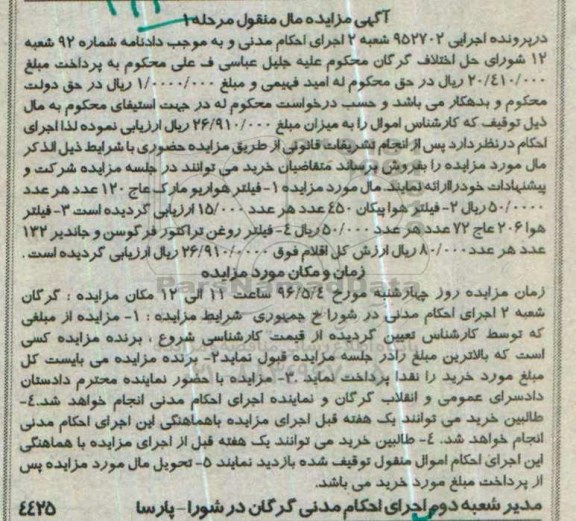 آگهی مزایده مال منقول مرحله ۱
درپرونده اجرایی ۹۵۲۷۰۲ شعبه ۲ اجرای احکام مدنی و به موجب دادنامه شماره ۹۲ شعبه
۱۲ شورای حل اختلاف گرگان محکوم علیه جلیل عباسی ف علی محکوم به پرداخت مبلغ
۲۰/٤۱۰/۰۰۰ ریال در حق محکوم له امید فهیمی و مبلغ ۱/۰۰۰۰/۰۰۰ ریال در حق دولت
محکوم و بدهکار می باشد و حسب درخواست محکوم له در جهت استیفای محکوم به مال
ذیل توقیف که کارشناس اموال را به میزان مبلغ ۲۶/۹۱۰/۰۰۰ ریال ارزیابی نموده لذا اجرای
احکام درنظردارد پس از انجام تشریفات قانونی از طریق مزایده حضوری با شرایط ذیل الذکر
مال مورد مزایده را بفروش برساند متقاضیان خرید می توانند در جلسه مزایده شرکت و
پیشنهادات خودراارائه نمایند. مال مورد مزایده ۱- فیلتر هواریو مارک عاج ۱۲۰ عدد هر عدد
۵۰/۰۰۰۰ ریال ۲- فیلتر هوا پیکان ٤۵۰ عدد هر عدد ۱۵/۰۰۰ ارزیابی گردیده است ۳- فیلتر
هوا ۲۰۶ عاج ۷۲ عدد هر عدد ۵۰/۰۰۰ ریال ٤- فیلتر روغن تراکتور فرگوسن و جاندیر ۱۳۲
عدد هر عدد ۸۰/۰۰۰ ریال ارزش کل اقلام فوق ۲۶/۹۱۰/۰۰۰۰ ریال ارزیابی گردیده است .
زمان و مکان مورد مزایده
زمان مزایده روز چهارشنبه مورخ ۹۶/۵/٤ ساعت ۱۱ الی ۱۲ مکان مزایده : گرگان
شعبه ۲ اجرای احکام مدنی در شورا خ جمهوری شرایط مزایده : ۱- مزایده از مبلغی
که توسط کارشناس تعیین گردیده از قیمت کارشناسی شروع ، برنده مزایده کسی
است که بالاترین مبلغ رادر جلسه مزایده قبول نماید۲- برنده مزایده می بایست کل
مبلغ مورد خرید را نقدا پرداخت نماید .۳- مزایده با حضور نماینده محترم دادستان
دادسرای عمومی و انقلاب گرگان و نماینده اجرای احکام مدنی انجام خواهد شد.٤-
طالبین خرید می توانند یک هفته قبل اجرای مزایده باهماهنگی این اجرای احکام مدنی
انجام خواهد شد. ٤- طالبین خرید می توانند یک هفته قبل از اجرای مزایده با هماهنگی
این اجرای احکام اموال منقول توقیف شده بازدید نمایند ۵- تحویل مال مورد مزایده پس
از پرداخت مبلغ مورد خرید می باشد.
مدیر شعبه دوم اجرای احکام مدنی گرگان در شورا-پارسا
٤٤۲۵
ParsNamadData